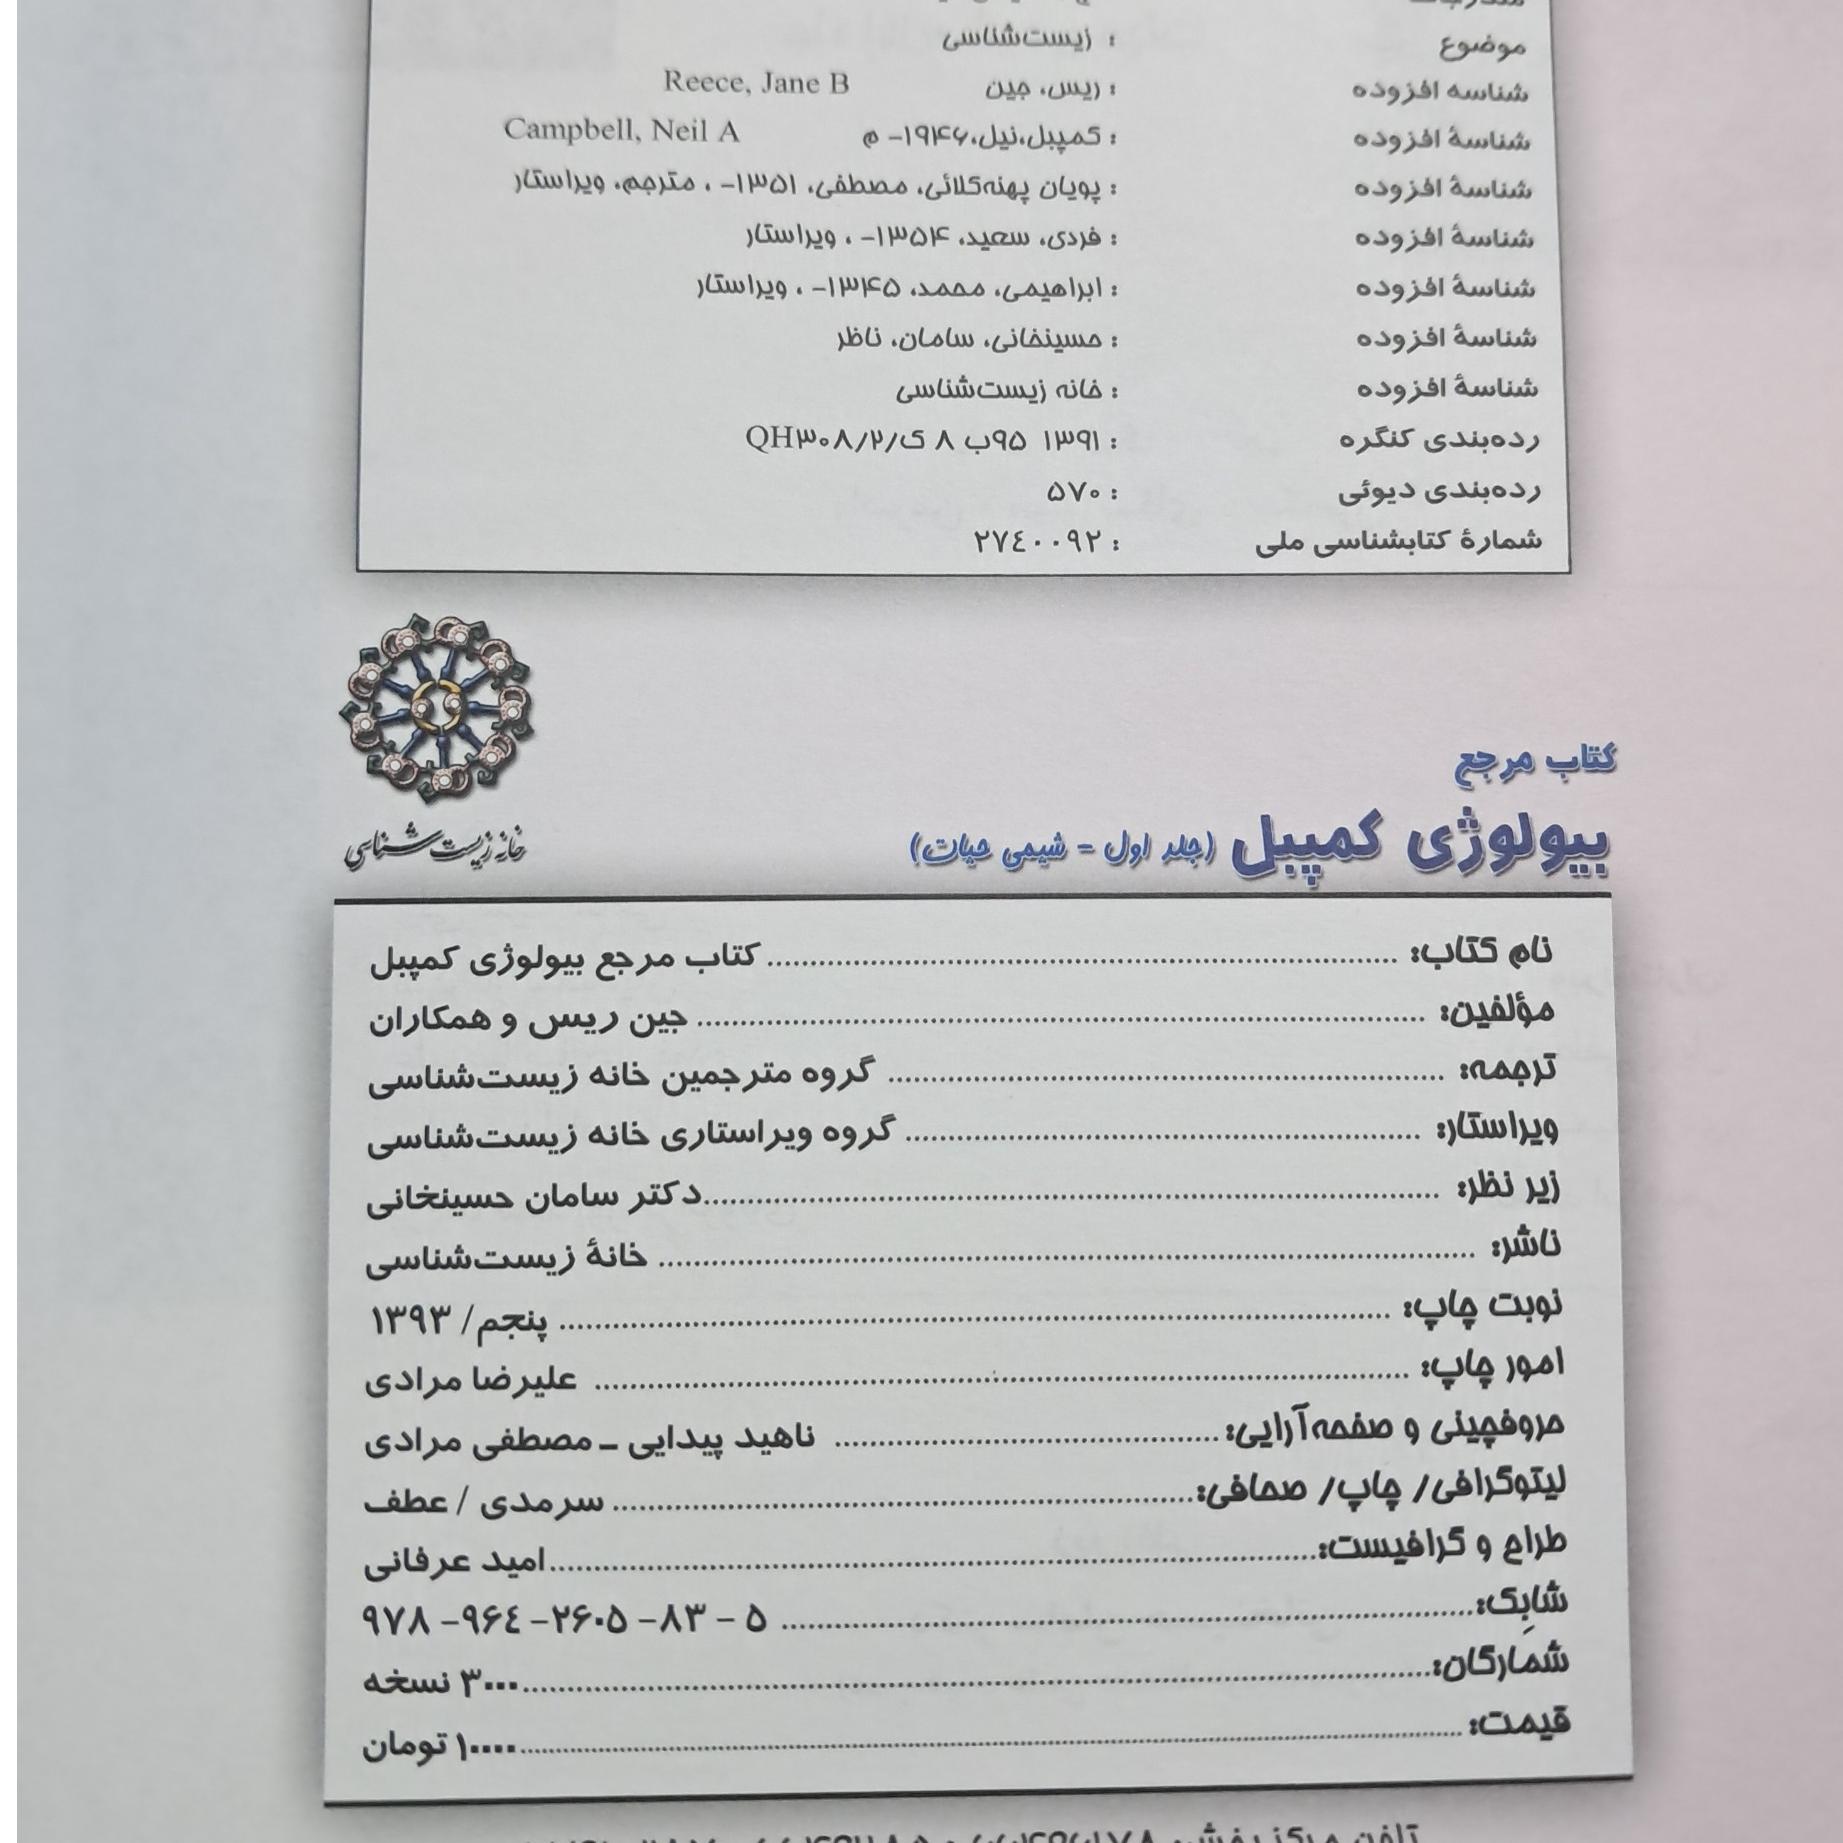 موضوع : زیست‌شناسی
شناسه افزوده : ریس، جین Reece, Jane B
شناسهٔ افزوده : کمپبل،نیل،۱۹۴۶- م Campbell, Neil A
شناسهٔ افزوده : پویان پهنه‌کلائی، مصطفی، ۱۳۵۱- ، مترجم، ویراستار
شناسهٔ افزوده : فردی، سعید، ۱۳۵۴- ، ویراستار
شناسهٔ افزوده : ابراهیمی، محمد، ۱۳۴۵- ، ویراستار
شناسهٔ افزوده : حسینخانی، سامان، ناظر
شناسهٔ افزوده : خانه زیست‌شناسی
رده‌بندی کنگره : ۱۳۹۱ ۹۵ب ۸ ک/QH۳۰۸/۲
رده‌بندی دیوئی : ۵۷۰
شمارهٔ کتابشناسی ملی : ۲۷٤۰۰۹۲
کتاب مرجع
بیولوژی کمپبل (جلد اول - شیمی حیات)
خانه زیست شناسی
نام کتاب: کتاب مرجع بیولوژی کمپبل
مؤلفین: جین ریس و همکاران
ترجمه: گروه مترجمین خانه زیست‌شناسی
ویراستار: گروه ویراستاری خانه زیست‌شناسی
زیر نظر: دکتر سامان حسینخانی
ناشر: خانهٔ زیست‌شناسی
نوبت چاپ: پنجم/ ۱۳۹۳
امور چاپ: علیرضا مرادی
حروفچینی و صفحه‌آرایی: ناهید پیدایی ـ مصطفی مرادی
لیتوگرافی/ چاپ/ صحافی: سرمدی / عطف
طراح و گرافیست: امید عرفانی
شابک: ۵ - ۸۳- ۲۶۰۵- ۹۶٤- ۹۷۸
شمارگان: ۳۰۰۰ نسخه
قیمت: ۱۰۰۰۰ تومان